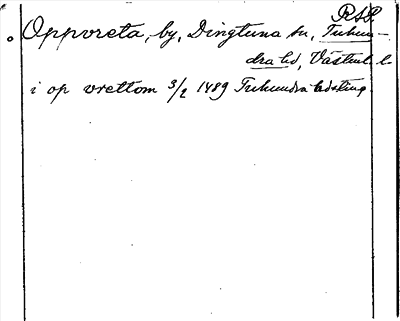 RSP.
Oppvreta, by, Dingtuna sn, Tuhun-
dra hd, Västml. l.
i op vrettom 3/2 1489 Tuhundra hädsting